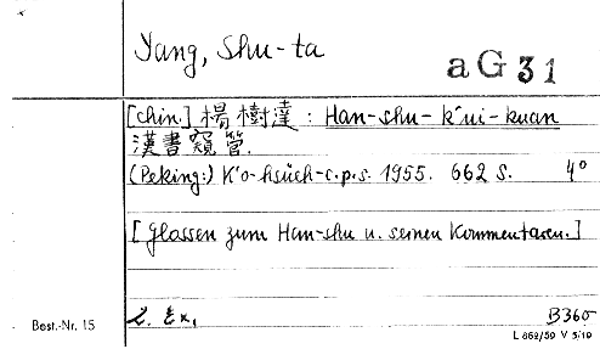 Yang, Shu-ta
aG31
[chin.] 楊樹達 : Han-shu-k'ui-kuan
漢書窺管.
(Peking:) K'o-hsüeh-c.p.s. 1955. 662 S. 4°
[Glossen zum Han-shu u. seinen Kommentaren.]
2. Ex.
B360
Best.-Nr. 15
L 862/59 V 5/19